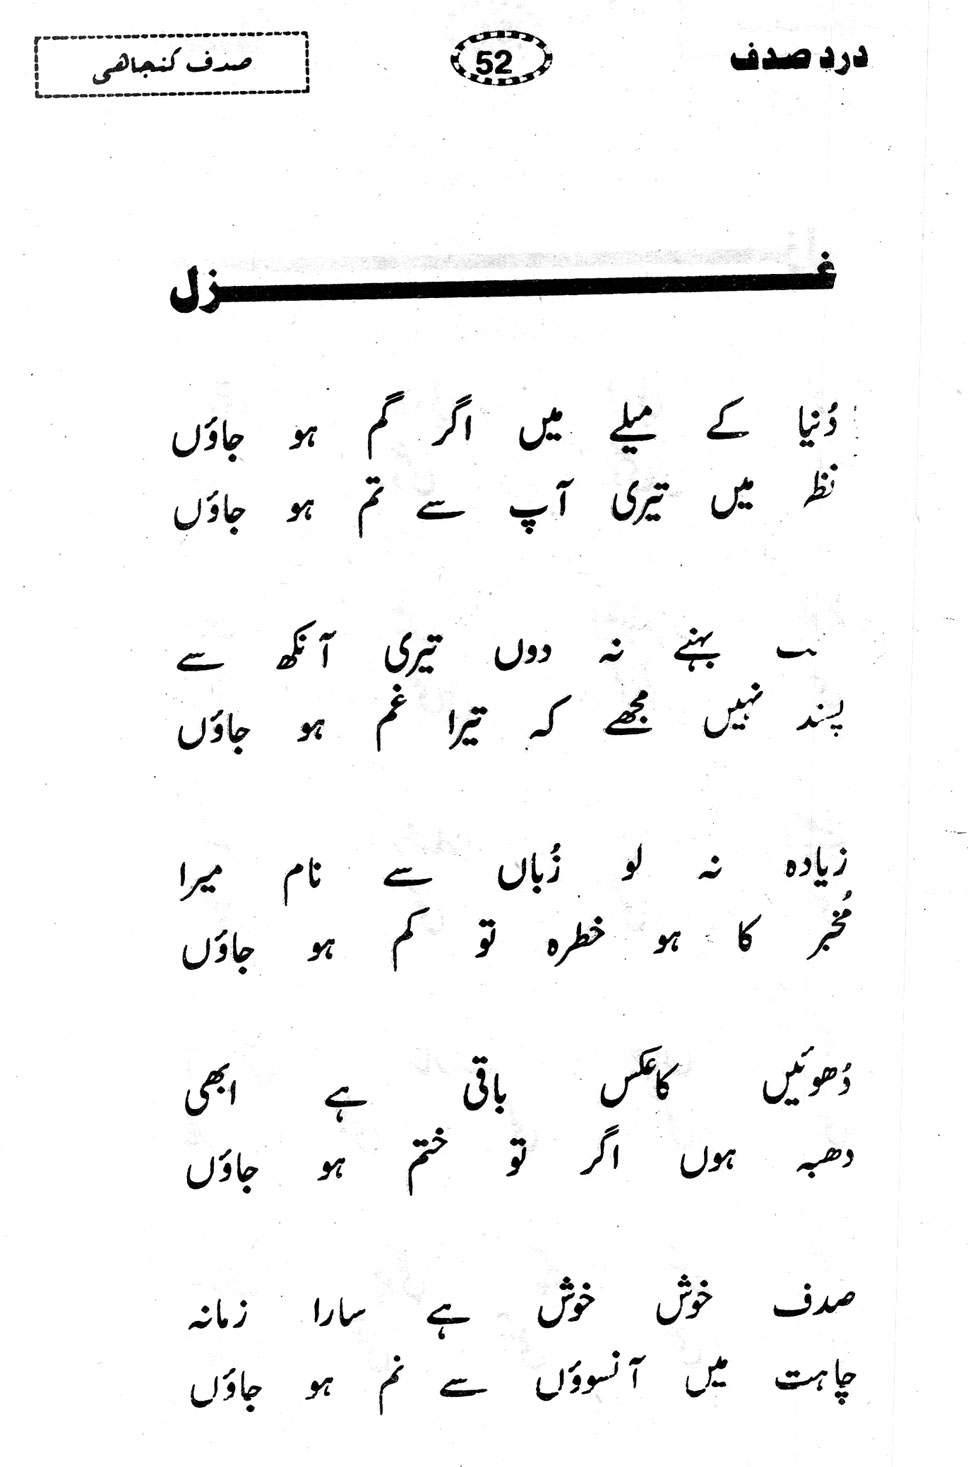 درد صدف
52
صدف کنجاہی
غزل
دُنیا کے میلے میں اگر گم ہو جاؤں
میں تیری آپ سے تم ہو جاؤں
بہنے نہ دوں تیری آنکھ سے
پسند نہیں مجھے کہ تیرا غم ہو جاؤں
زیادہ نہ لو زُباں سے نام میرا
مُخبر کا ہو خطرہ تو کم ہو جاؤں
دُھوئیں کا عکس باقی ہے ابھی
دھبہ ہوں اگر تو ختم ہو جاؤں
صدف خوش خوش ہے سارا زمانہ
چاہت میں آنسوؤں سے نم ہو جاؤں